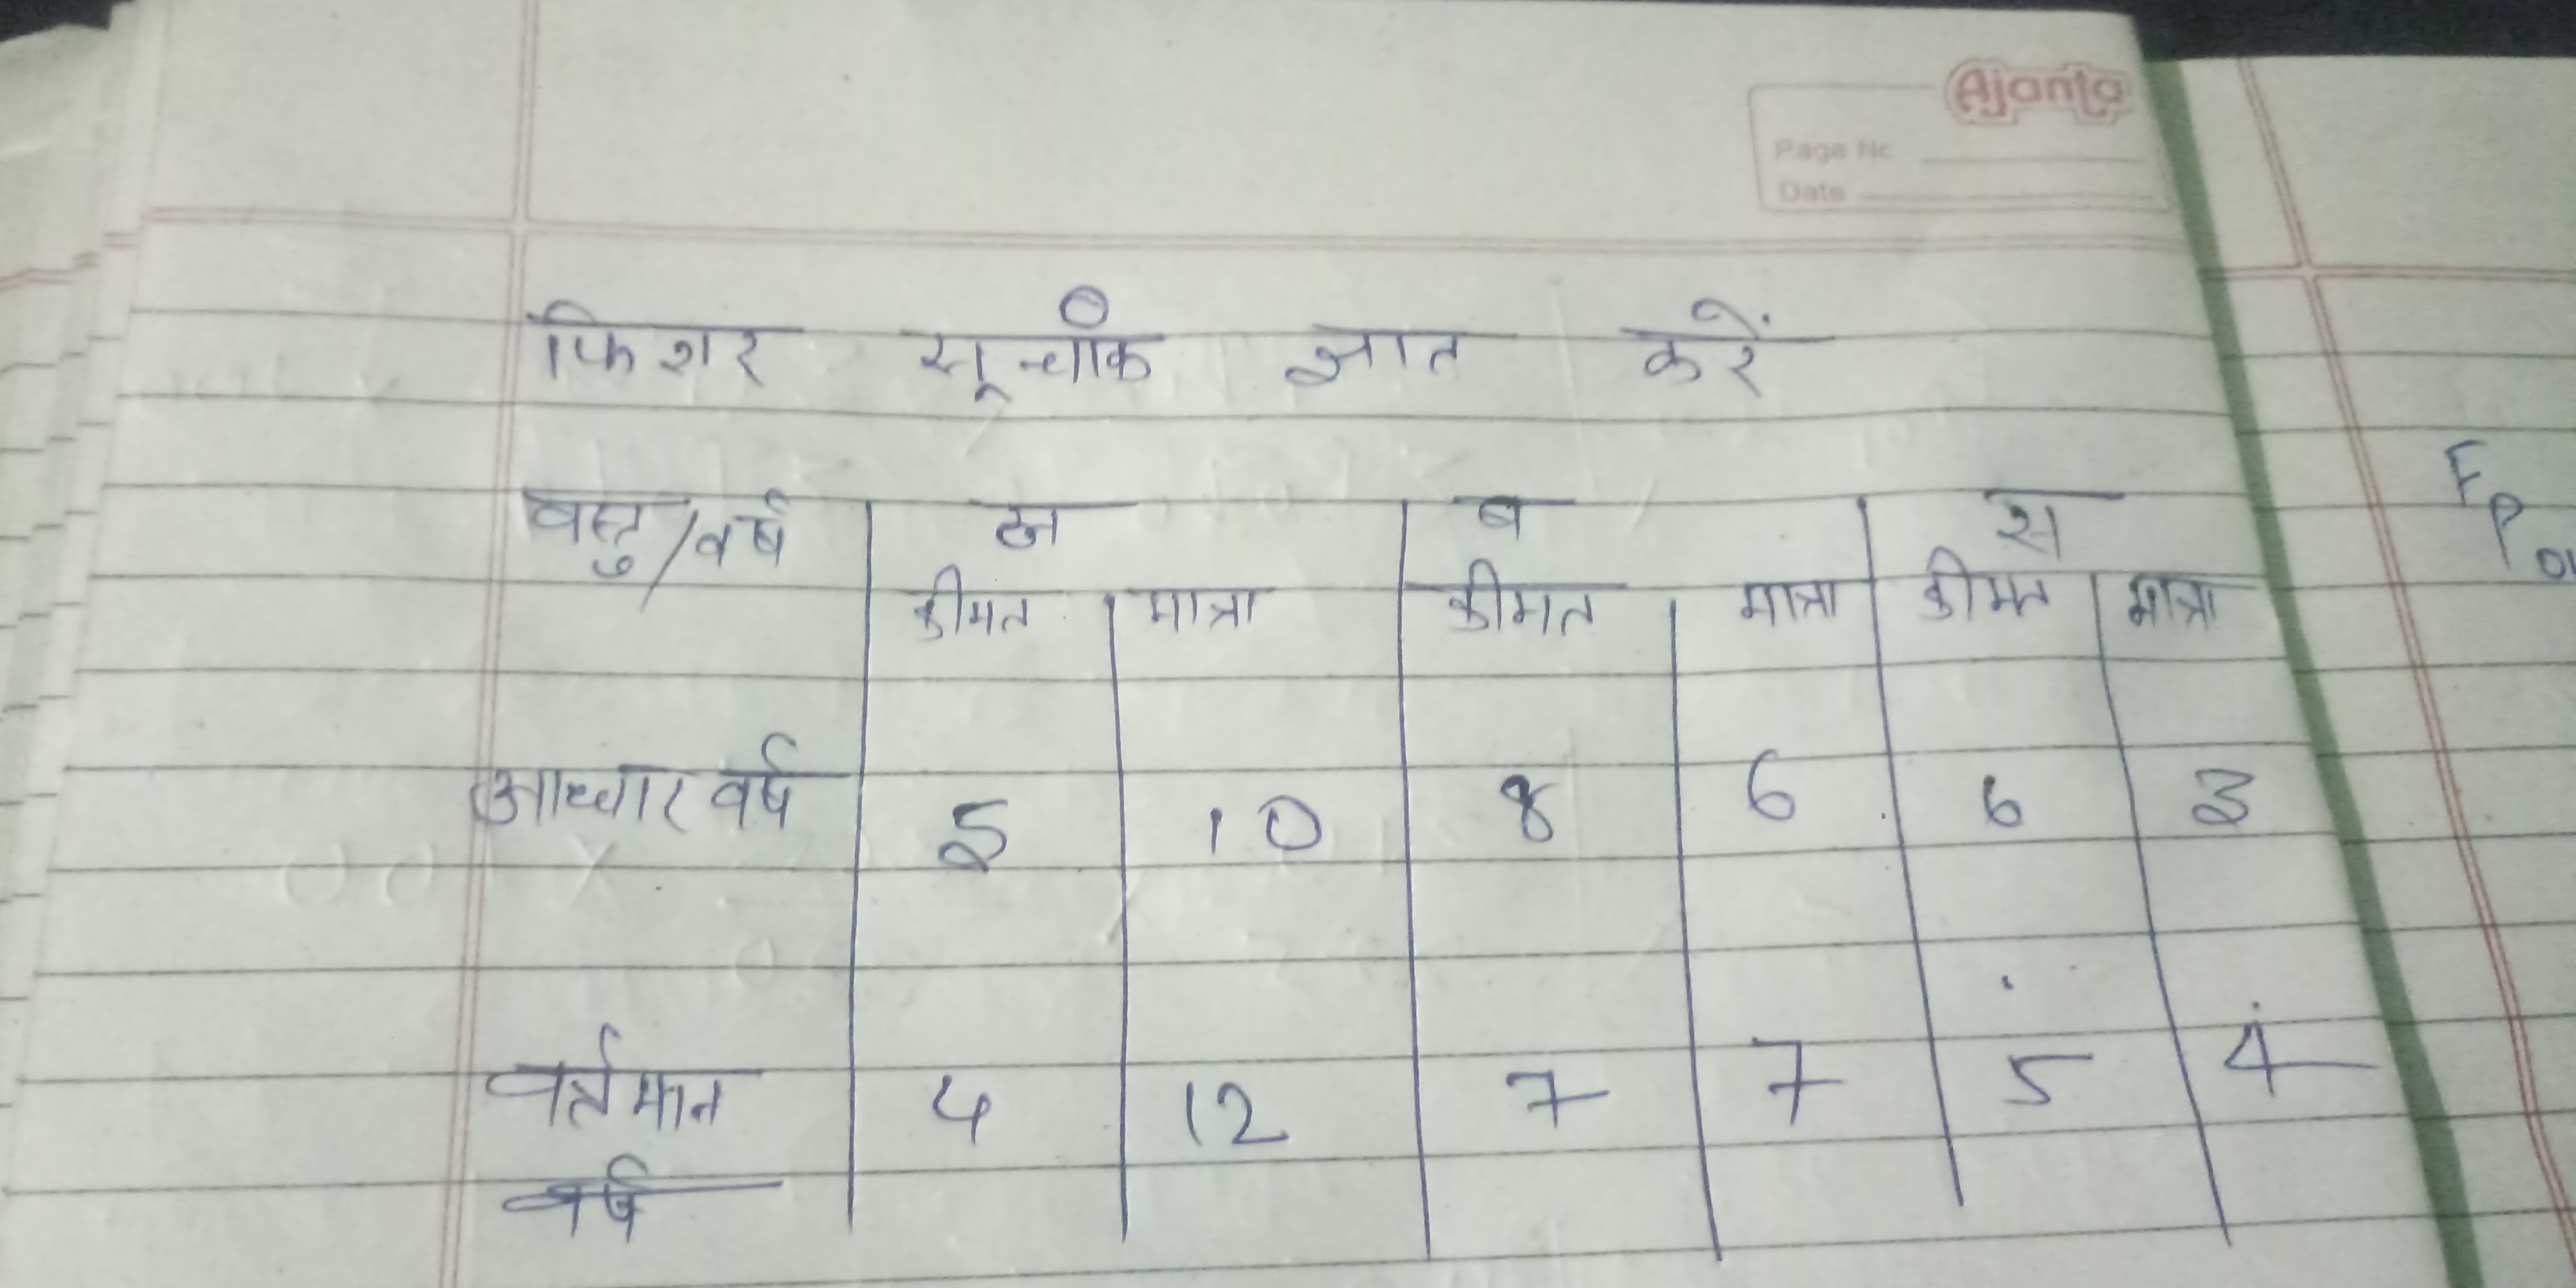 Ajanta
Page No
Date
फिशर सूचांक ज्ञात करें
वस्तु/वर्ष ब स
कीमत मात्रा कीमत मात्रा कीमत मात्रा
आधार वर्ष 5 10 8 6 6 3
वर्तमान 4 12 7 7 5 4
वर्ष